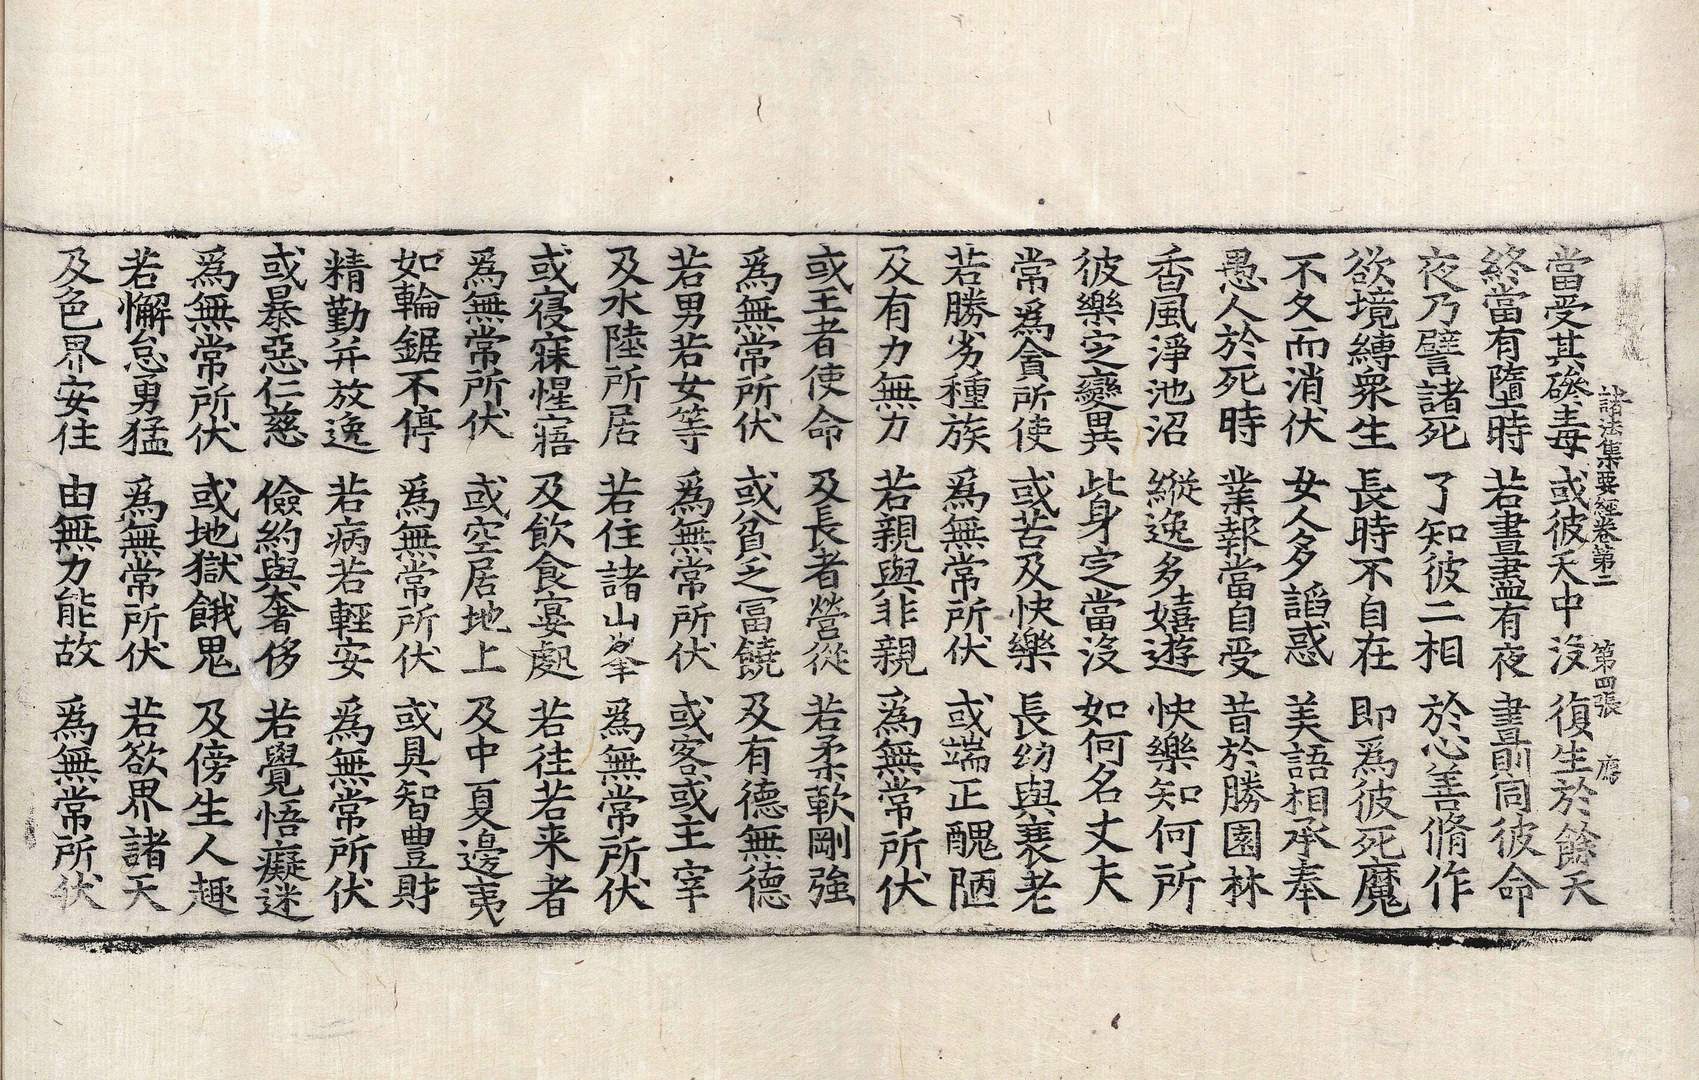 諸法集要經卷第二 第四張 應
當受其磣毒 或彼天中沒 復生於餘天
終當有墮時 若晝盡有夜 晝則同彼命
夜乃譬諸死 了知彼二相 於心善脩作
欲境縛衆生 長時不自在 即爲彼死魔
不久而消伏 女人多謟惑 美語相承奉
愚人於死時 業報當自受 昔於勝園林
香風淨池沼 縱逸多嬉遊 快樂知何所
彼樂之變異 此身定當沒 如何名丈夫
常爲貪所使 或苦及快樂 長幼與衰老
若勝劣種族 爲無常所伏 或端正醜陋
及有力無力 若親與非親 爲無常所伏
或王者使命 及長者營從 若柔軟剛強
爲無常所伏 或貧之冨饒 及有德無德
若男若女等 爲無常所伏 或客或主宰
及水陸所居 若住諸山峯 爲無常所伏
或寑寐惺寤 及飲食宴處 若往若来者
爲無常所伏 或空居地上 及中夏邊夷
如輪鋸不停 爲無常所伏 或具智豊財
精勤并放逸 若病若輕安 爲無常所伏
或暴惡仁慈 儉約與奢侈 若覺悟癡迷
爲無常所伏 或地獄餓鬼 及傍生人趣
若懈怠勇猛 爲無常所伏 若欲界諸天
及色界安住 由無力能故 爲無常所伏